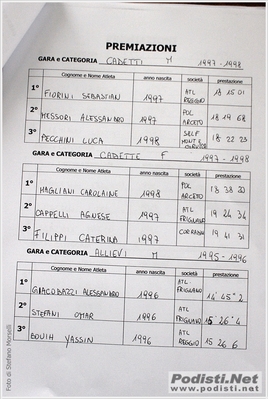 PREMIAZIONI
GARA e CATEGORIA CADETTI M 1997-1998
Cognome e Nome Atleta anno nascita società prestazione
1° FIORINI SEBASTIAN 1997 ATL REGGIO 18 15 01
2° MESSORI ALESSANDRO 1997 POL ARCETO 18 19 68
3° PECCHINI LUCA 1998 SELF 18 22 23
GARA e CATEGORIA CADETTE F 1997-1998
Cognome e Nome Atleta anno nascita società prestazione
1° MAGLIANI CAROLAINE 1998 POL ARCETO 18 38 30
2° CAPPELLI AGNESE 1997 ATL FRIGNANO 19 24 34
3° FILIPPI CATERINA 1997 CORRADINI 19 41 31
GARA e CATEGORIA ALLIEVI M 1995-1996
Cognome e Nome Atleta anno nascita società prestazione
1° GIACOBAZZI ALESSANDRO 1996 ATL FRIGNANO 14 45 2
2° STEFANI OMAR 1996 ATL FRIGNANO 15 26 4
3° BOUIH YASSIN 1996 ATL REGGIO 15 26 6
Foto di Stefano Morselli
Podisti.Net
www.podisti.net